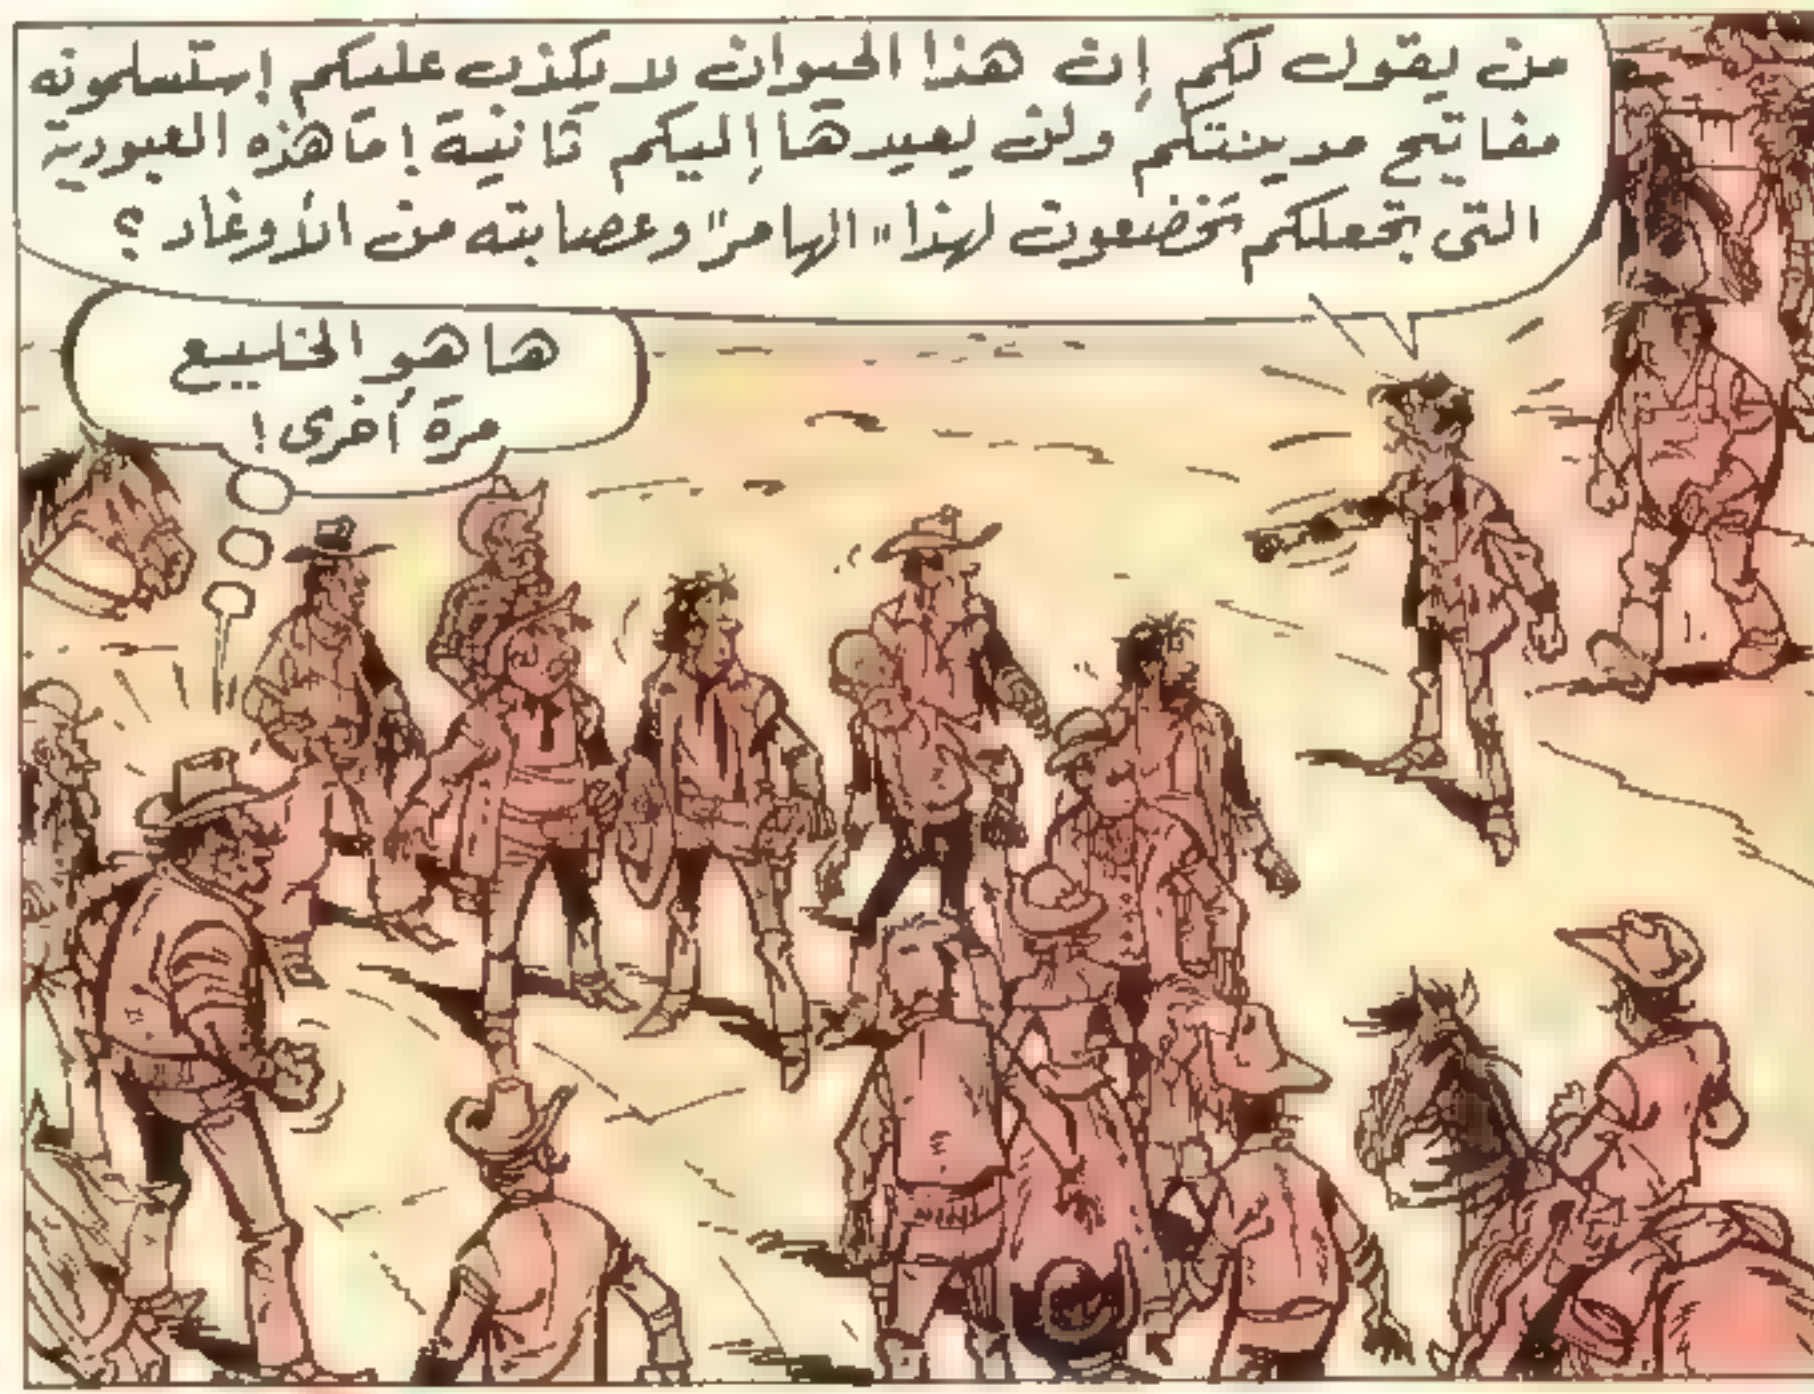 من يقول لكم إن هذا الحيوان لا يكذب عليكم إستسلمونه
مفاتيح مدينتكم ولن يعيدها إليكم ثانية ! ما هذه العبودية
التي تجعلكم تخضعون لهذا "الهامر" وعصابته من الأوغاد ؟
ها هو الخليع
مرة أخرى !